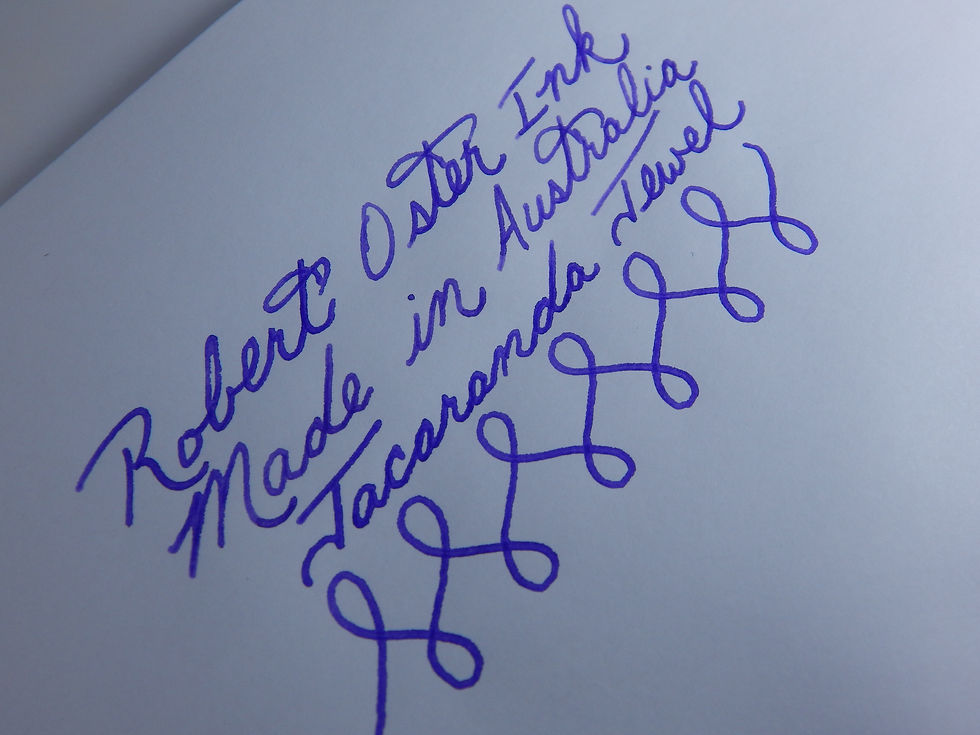 Robert Oster Ink
Made in Australia
Jacaranda Jewel